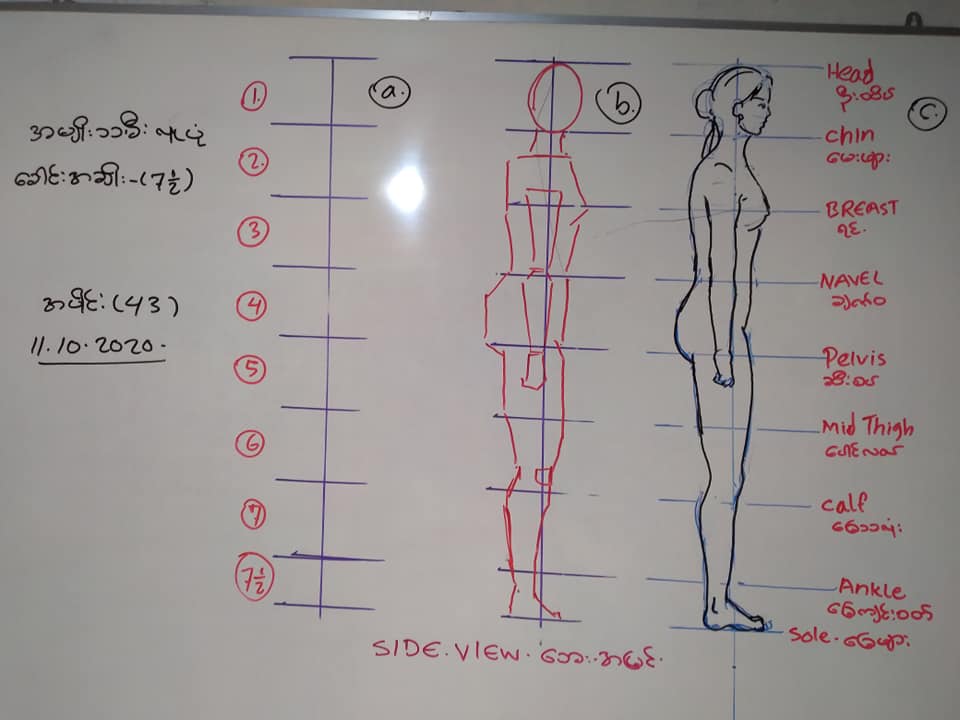 အမျိုးသမီး ရပ်ပုံ
ခေါင်းအဆီး-(7½)
အပိုင်း (43)
11.10.2020.
1.
2.
3
4
5
6
7
7½
a.
b.
c.
Head
ဦးထိပ်
chin
မေးဖျား
BREAST
ရင်
NAVEL
ချက်
Pelvis
ဆီးစပ်
Mid Thigh
ပေါင်လယ်
Calf
ခြေသလုံး
Ankle
ခြေကျင်းဝတ်
Sole.
SIDE.VIEW. ဘေး အမြင်.